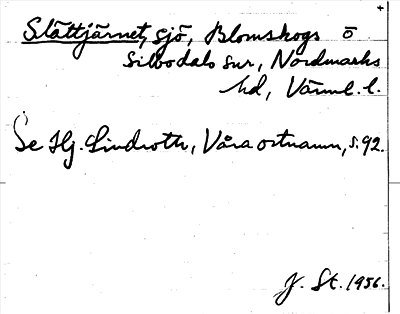 Slättjärnet, sjö, Blomskogs o
Silbodals snr, Nordmarks
hd, Värml. l.
Se Hj. Lindroth, Våra ortnamn, s. 92.
J. St. 1956.